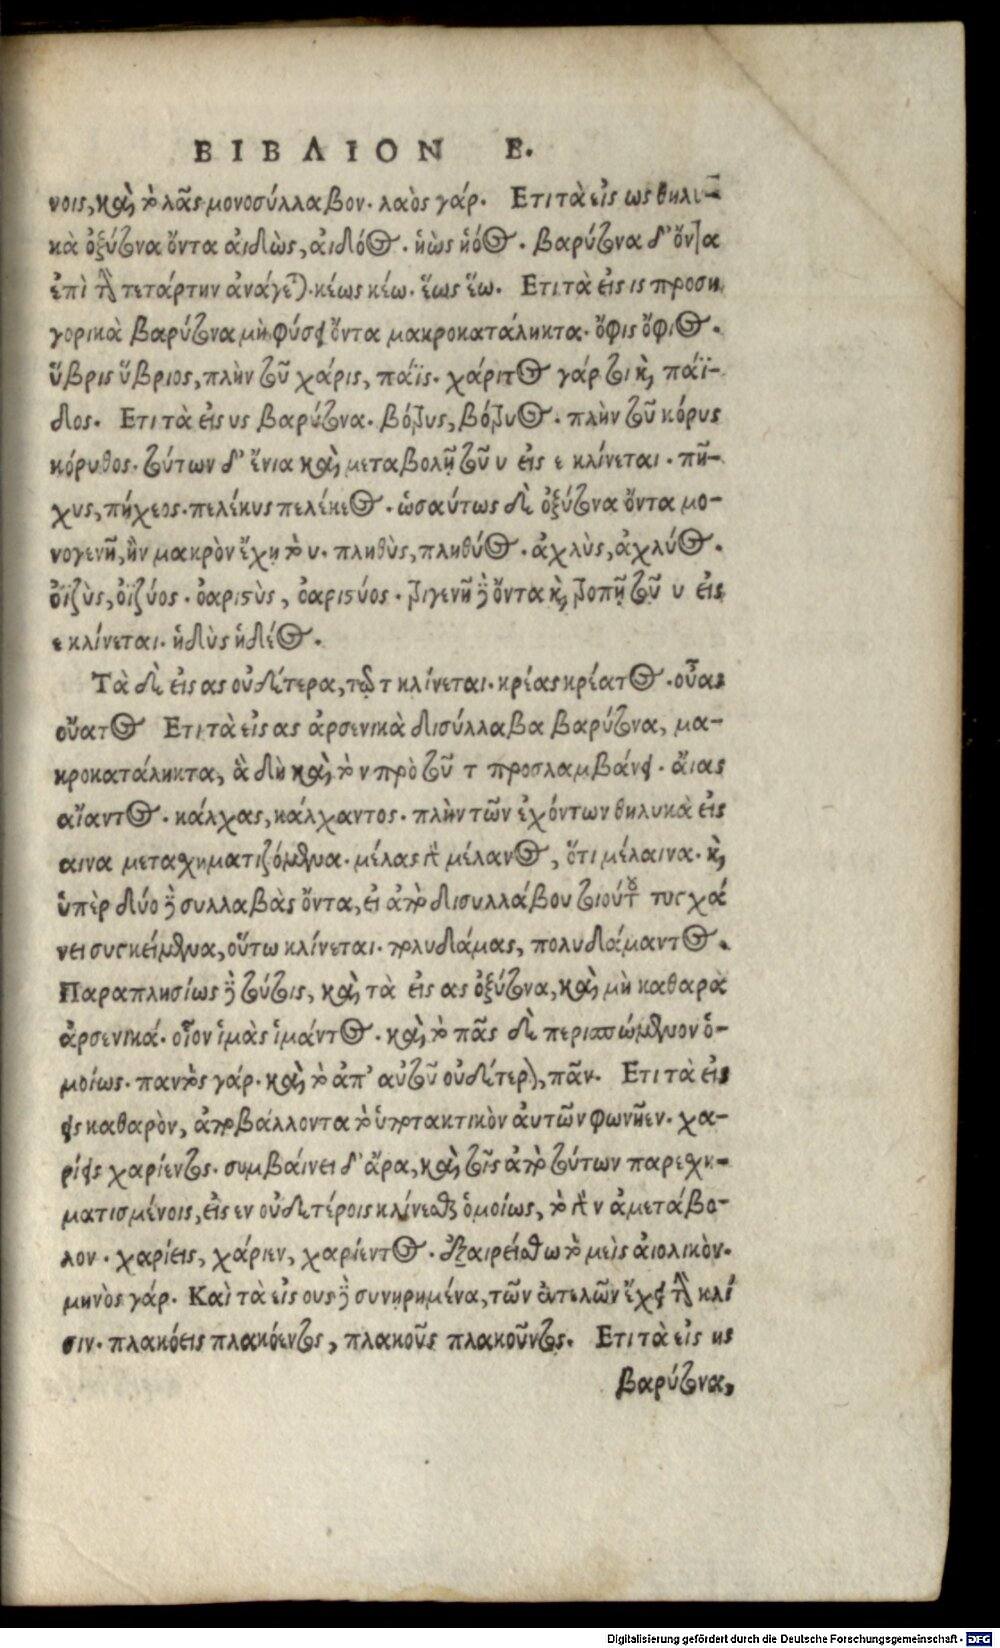 ΒΙΒΛΙΟΝ Ε.
νοις, καὶ τὸ λᾶς μονοσύλλαβον. λαὸς γάρ. Ετι τὰ εἰς ως θηλυ-
κὰ ὀξύτονα ὄντα αἰδὼς, αἰδόος. ἠὼς ἠόος. βαρύτονα δ' ὄντα
ἐπὶ τὴν τετάρτην ἀνάγεται. κέως κέω. ἕως ἕω. Ετι τὰ εἰς ις προση
γορικὰ βαρύτονα μὴ φύσει ὄντα μακροκατάληκτα. ὄφις ὄφιος.
ὕβρις ὕβριος, πλὴν τοῦ χάρις, πάϊς. χάριτος γάρ τοι καὶ πάϊ-
δος. Ετι τὰ εἰς υς βαρύτονα. βότρυς, βότρυος. πλὴν τοῦ κόρυς
κόρυθος. τούτων δ' ἔνια καὶ μεταβολῇ τοῦ υ εἰς ε κλίνεται. πῆ-
χυς, πήχεος. πελέκυς πελέκεος. ὡσαύτως δὲ ὀξύτονα ὄντα μο-
νογενῆ, ἢν μακρὸν ἔχῃ τὸ υ. πληθὺς, πληθύος. ἀχλὺς, ἀχλύος.
ὀϊζὺς, ὀϊζύος. ὀαριστὺς, ὀαριστύος. τριγενῆ δὲ ὄντα καὶ τροπῇ τοῦ υ εἰς
ε κλίνεται. ἡδὺς ἡδέος.
Τὰ δὲ εἰς ας οὐδέτερα, τῷ τ κλίνεται. κρέας κρέατος. οὖας
οὔατος Ετι τὰ εἰς ας ἀρσενικὰ δισύλλαβα βαρύτονα, μα-
κροκατάληκτα, ἃ δὴ καὶ τὸ ν πρὸ τοῦ τ προσλαμβάνει. ἄιας
αἴαντος. κάλχας, κάλχαντος. πλὴν τῶν ἐχόντων θηλυκὰ εἰς
αινα μετασχηματιζόμενα. μέλας γὰρ μέλανος, ὅτι μέλαινα. καὶ
ὑπὲρ δύο δὲ συλλαβὰς ὄντα, εἰ ἀπὸ δισυλλάβου τοιούτου τυγχά
νει συγκείμενα, οὕτω κλίνεται. πολυδάμας, πολυδάμαντος.
Παραπλησίως δὲ τούτοις, καὶ τὰ εἰς ας ὀξύτονα, καὶ μὴ καθαρὰ
ἀρσενικά. οἷον ἱμὰς ἱμάντος. καὶ τὸ πᾶς δὲ περισπώμενον ὁ-
μοίως. παντὸς γάρ. καὶ τὸ ἀπ' αὐτοῦ οὐδέτερον, πᾶν. Ετι τὰ εἰς
εις καθαρὸν, ἀποβάλλοντα τὸ ὑποτακτικὸν ἀυτῶν φωνῆεν. χα-
ρίεις χαρίεντος. συμβαίνει δ' ἄρα, καὶ τοῖς ἀπὸ τούτων παρεσχη-
ματισμένοις, εἰς εν οὐδετέροις κλίνεσθαι ὁμοίως, τὸ γὰρ ν ἀμετάβο-
λον. χαρίεις, χάριεν, χαρίεντος. ἐξαιρείσθω τὸ μεὶς ἀιολικὸν.
μηνὸς γάρ. Καὶ τὰ εἰς ους δὲ συνηρημένα, τῶν ἐντελῶν ἔχει τὴν κλί
σιν. πλακόεις πλακόεντος, πλακοῦς πλακοῦντος. Ετι τὰ εἰς ης
βαρύτονα,
Digitalisierung gefördert durch die Deutsche Forschungsgemeinschaft - DFG